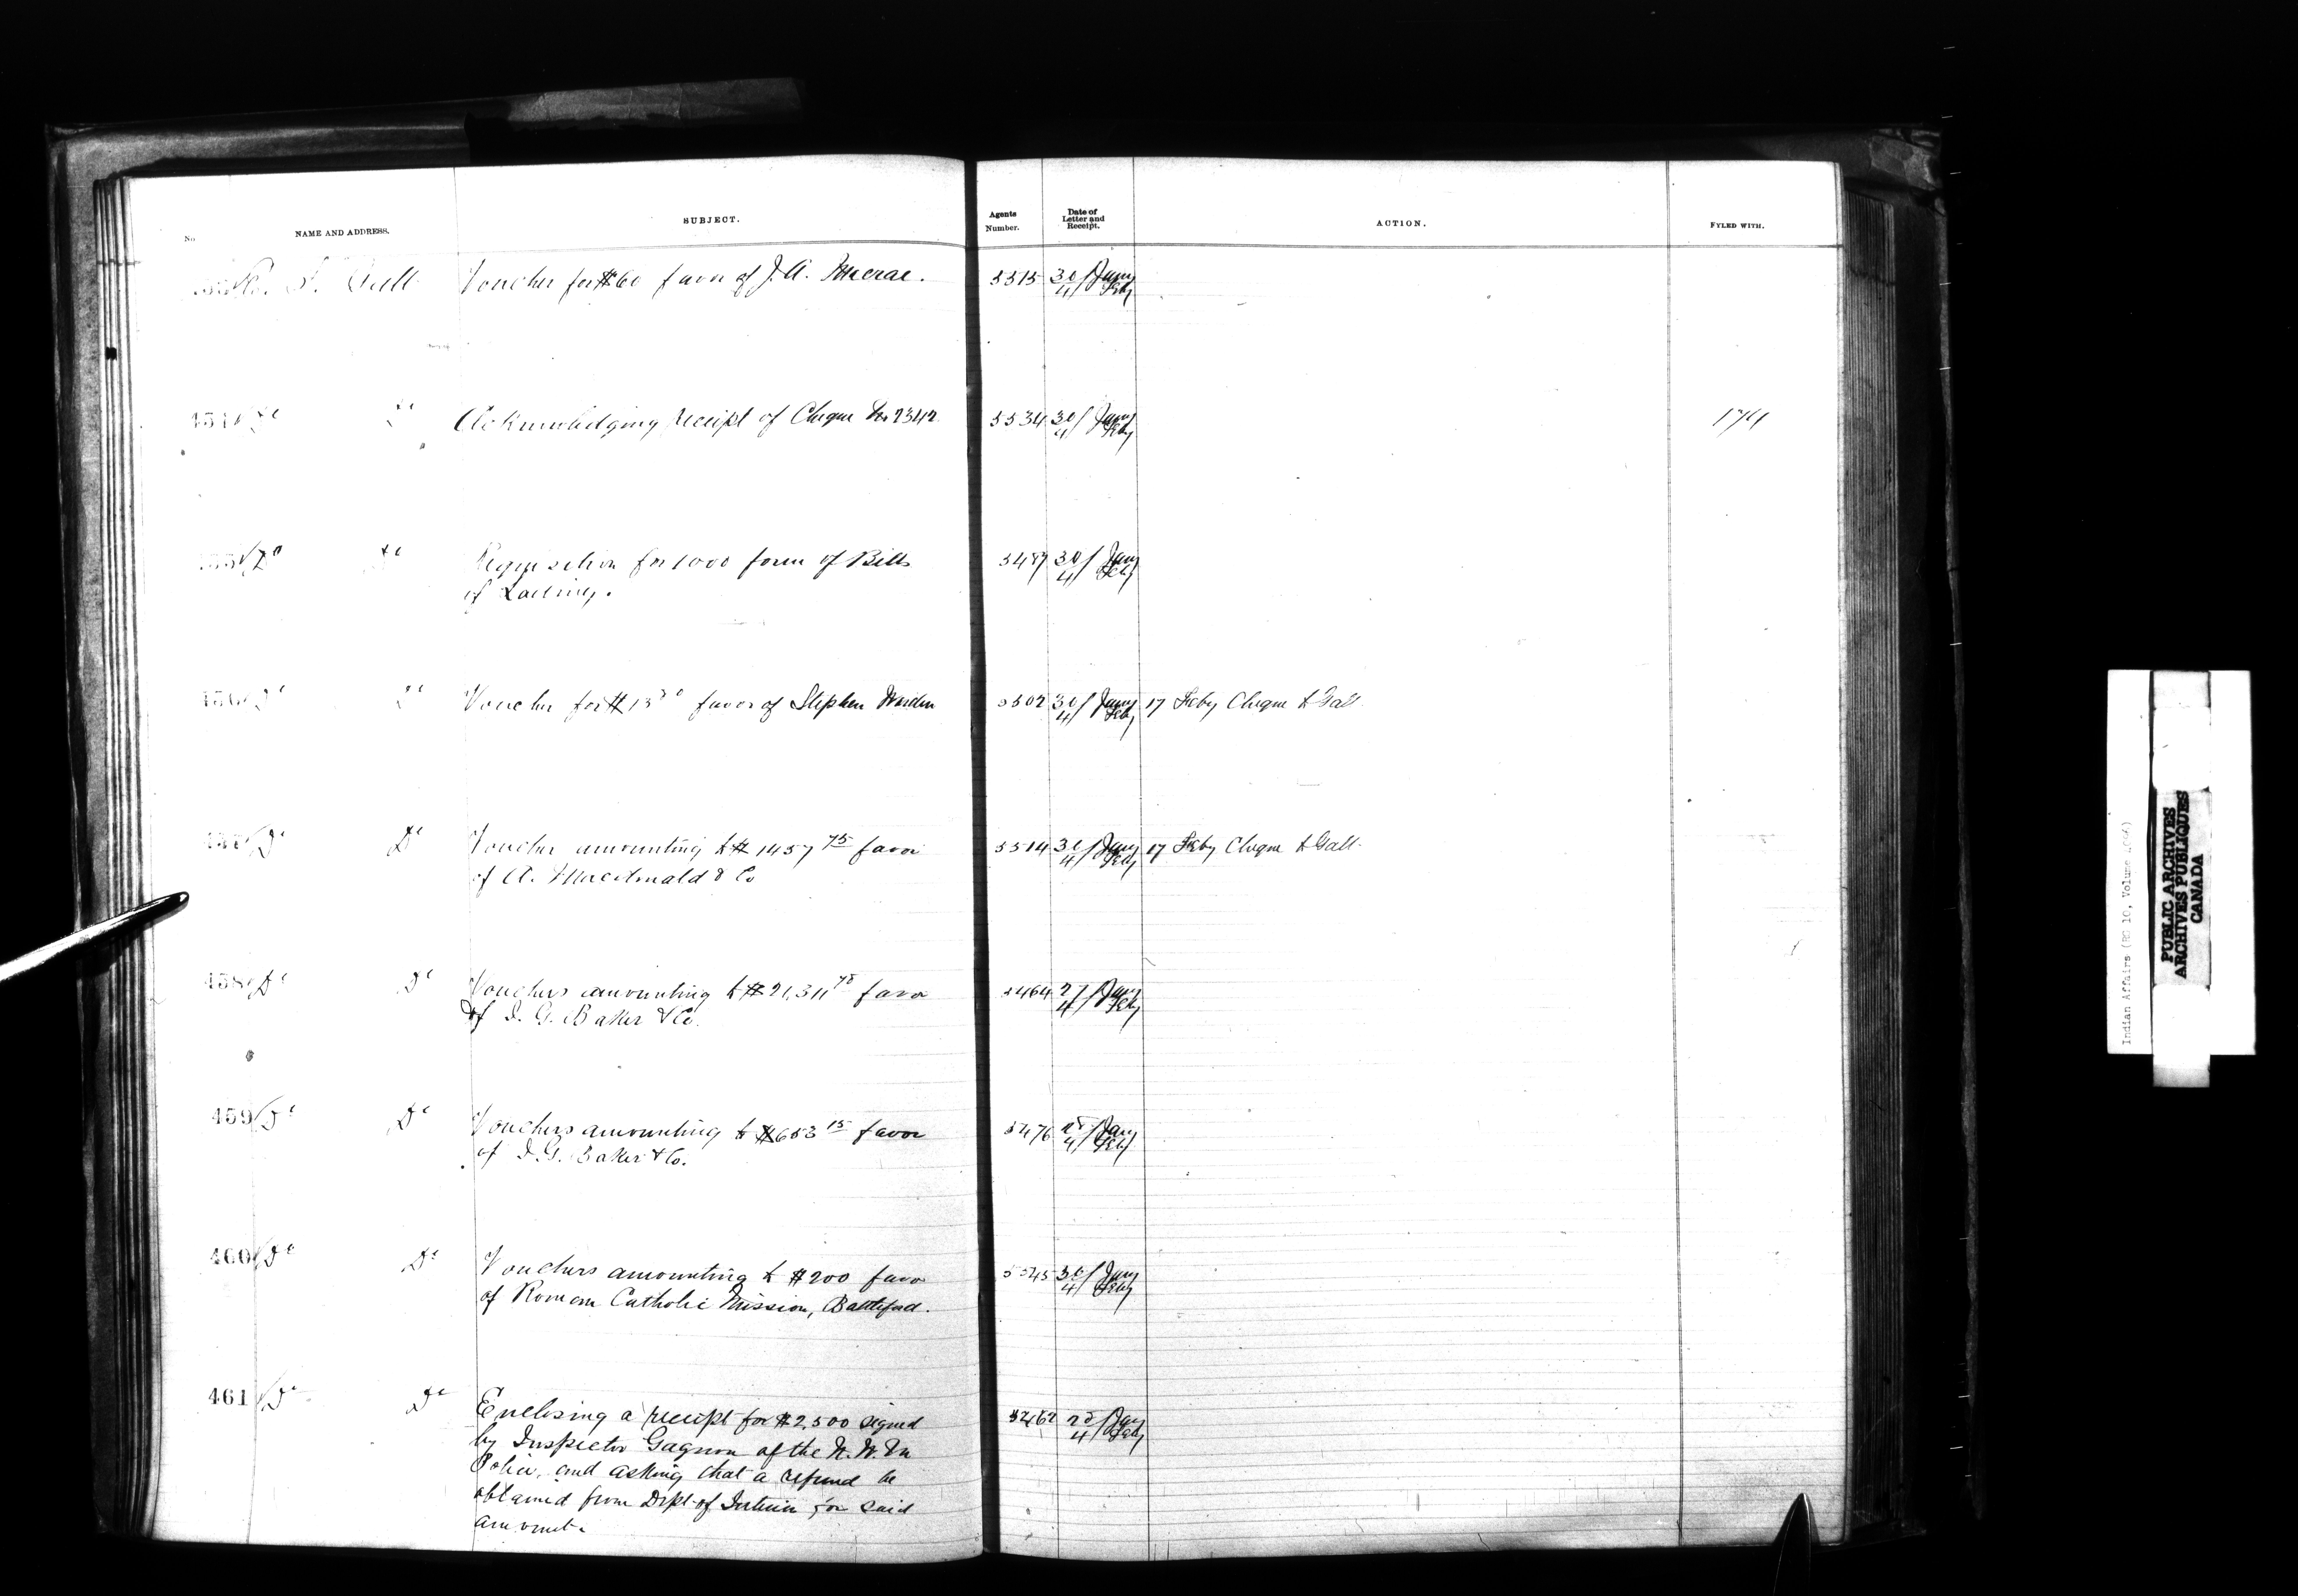 No. NAME AND ADDRESS. SUBJECT. Agents Number. Date of Letter and Receipt. ACTION. FYLED WITH.
Voucher for $60 favor of J. A. Macrae. 5515 30/4 Jany Feby
454 Do Do Acknowledging receipt of Cheque No 2342. 5534 30/4 Jany Feby 174
Do Do Requisition for 1000 form of Bills 5487 30/4 Jany Feby
of Lading.
456 Do Do Voucher for $13 favor of Stephen Warden 5502 30/4 Jany Feby 17 Feby Cheque to Gall
457 Do Do Voucher amounting to $1457 75 favor 5514 30/4 Jany Feby 17 Feby Cheque to Gall
of A. Macdonald & Co
458 Do Do Vouchers amounting to $21,311 75 favor 5464 27/4 Jany Feby
of I. G. Baker & Co.
459 Do Do Vouchers amounting to $653 15 favor 5476 28/4 Jany Feby
of I. G. Baker & Co.
460 Do Do Vouchers amounting to $200 favor 30/4 Jany Feby
of Roman Catholic Mission, Battleford.
461 Do Do Enclosing a receipt for $2,500 signed 5462 28/4 Jany Feby
by Inspector Gagnon of the N. W. M
Police, and asking that a refund be
obtained from Dept of Interior for said
amount.
Indian Affairs (RG 10, Volume
PUBLIC ARCHIVES
ARCHIVES PUBLIQUES
CANADA